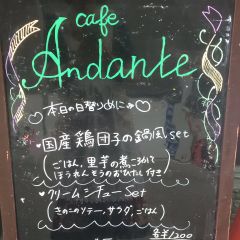 cafe
Andante
本日の日替りめにゅ
・国産鶏団子の鍋風set
(ごはん, 里芋の煮っころがし
ほうれんそうのおひたし 付き)
・クリームシチューSet
(きのこのソテー、サラダ、ごはん)
各¥1200